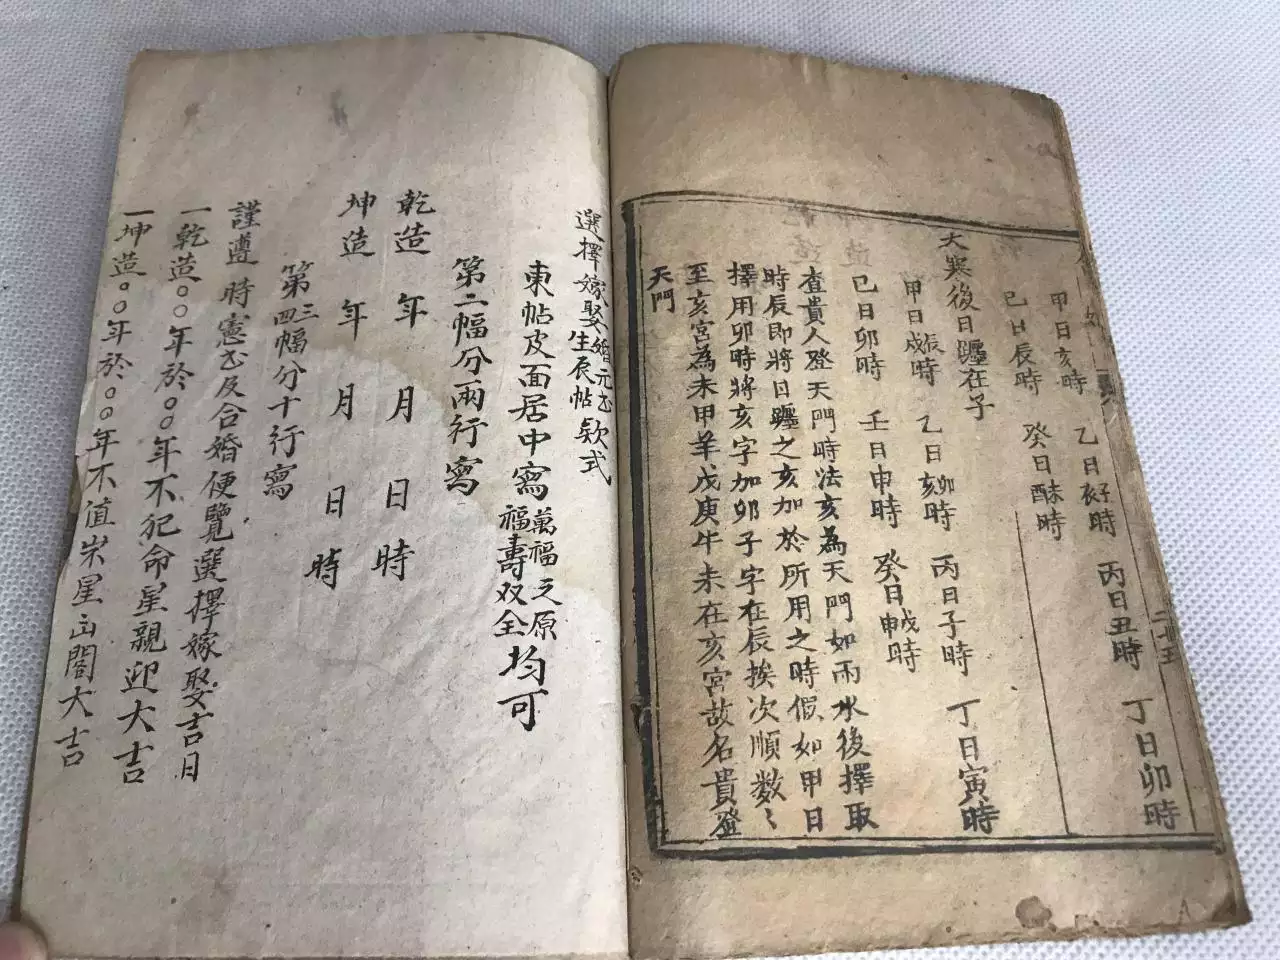 甲日亥時　乙日亥子時　丙日丑時　丁日卯時
巳日辰時　癸日酉未時
大寒後日躔在子
甲日戌辰時　乙日亥卯時　丙日子時　丁日寅時
巳日卯時　壬日申時　癸日申戌時
查貴人登天門時法亥為天門如雨水後擇取
時辰即將日躔之亥加於所用之時假如甲日
擇用卯時將亥字加卯子字在辰挨次順數〻
至亥宮為未甲羊戊庚牛未在亥宮故名貴登
天門
選擇嫁娶婚元书生辰帖欵式
東帖皮面居中寫萬福之原福壽双全均可
第二幅分兩行寫
乾造　年　月　日　時
坤造　年　月　日　時
第三四幅分十行寫
謹遵時憲书及合婚便覽選擇嫁娶吉日
一乾造○○年於○○年不犯命星親迎大吉
一坤造○○年於○○年不值米星占閣大吉